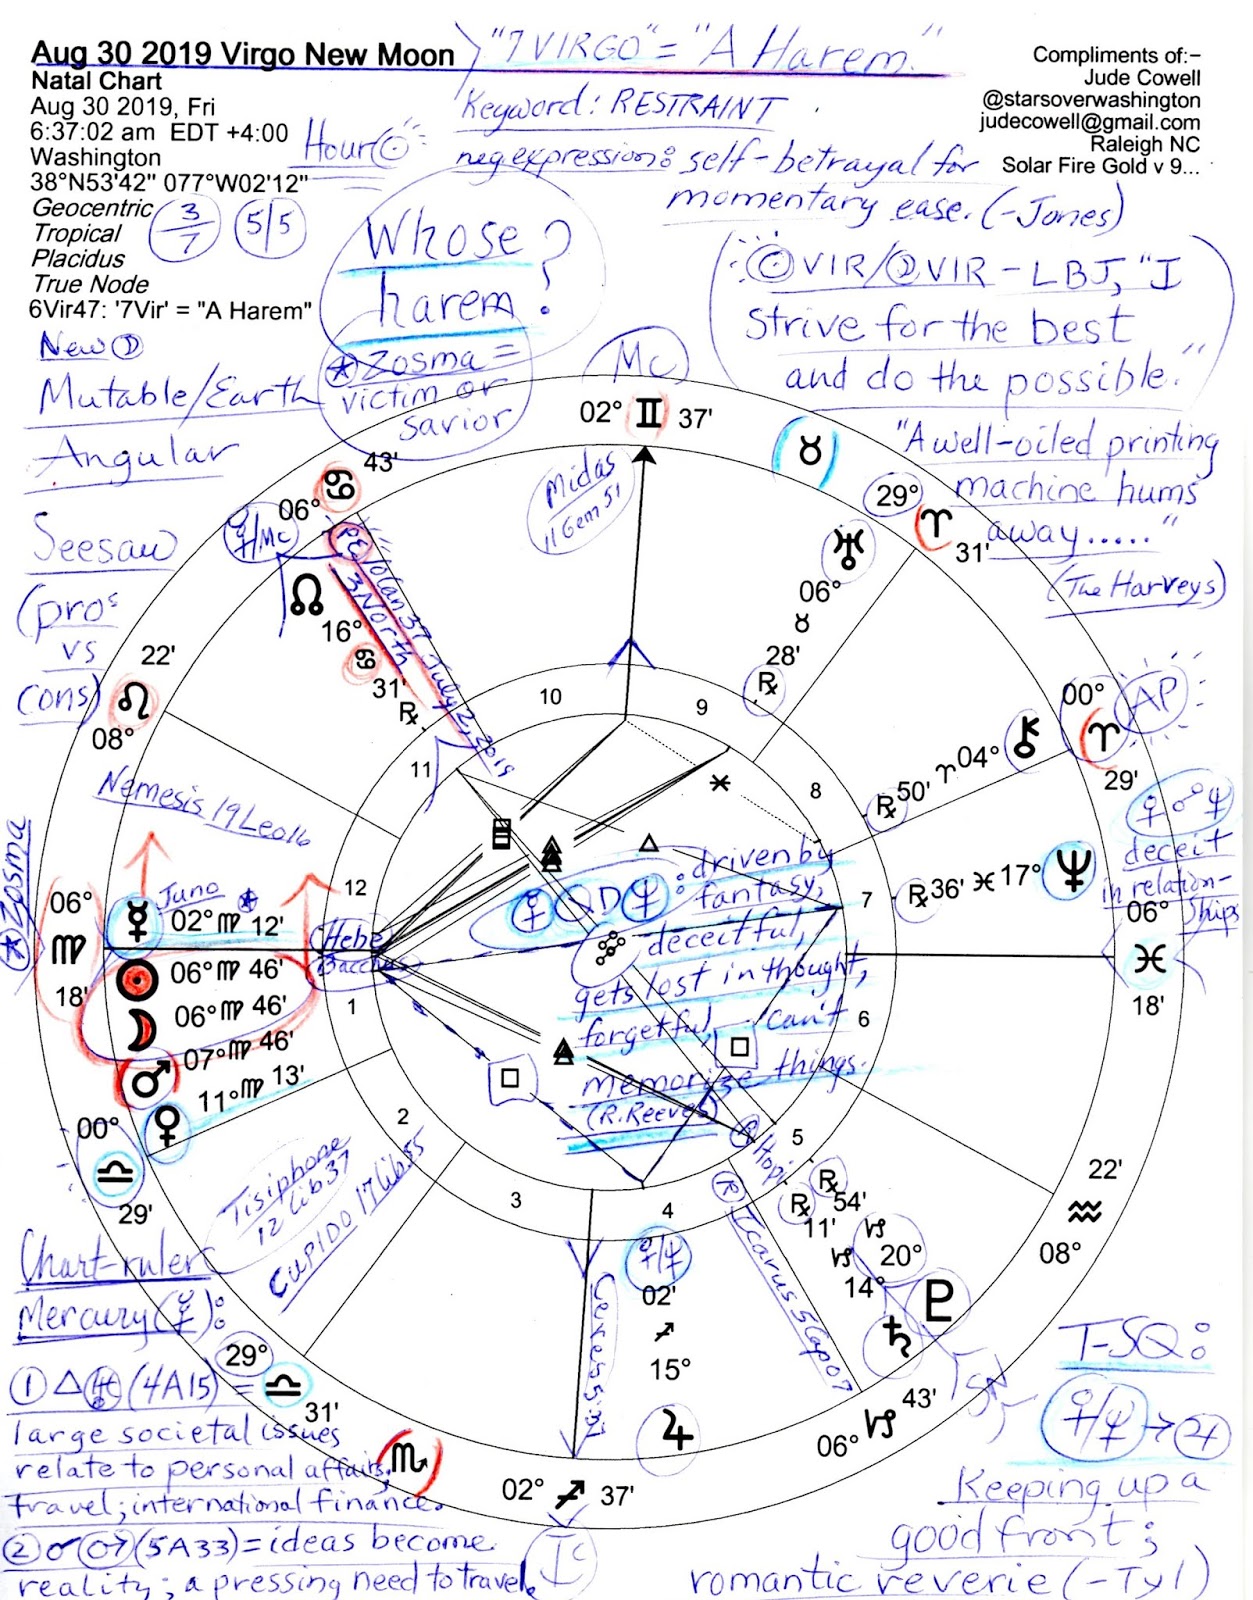 Aug 30 2019 Virgo New Moon
Natal Chart
Aug 30 2019, Fri
6:37:02 am EDT +4:00
Washington
38°N53'42" 077°W02'12"
Geocentric
Tropical
Placidus
True Node
6Vir47: '7Vir' = "A Harem"
"7 VIRGO" = "A Harem."
Keyword: RESTRAINT
neg expression: self-betrayal for
momentary ease. (-Jones)
Compliments of:-
Jude Cowell
@starsoverwashington
judecowell@gmail.com
Raleigh NC
Solar Fire Gold v 9...
Hour ☉
3/7
5/5
Whose
harem?
*Zosma =
victim or
savior
☉VIR/☽VIR - LBJ, "I
strive for the best
and do the possible."
"A well-oiled printing
machine hums
away....."
(The Harveys)
New ☽
Mutable/Earth
Angular
Seesaw
(pros
vs
cons)
Mc
02° ♊ 37'
♉
29° ♈ 31'
43'
♋
06°
☿/Mc
Midas
11Gem51
♅
06°
♉
28'
℞
☊
16°
♋
31'
℞
July 2, 2019
3 North
22'
♌
08°
00°
♈
29'
AP
⚷
04°
♈
50'
℞
Nemesis 19Leo16
*Zosma
06°
♍
18'
☿ 02° ♍ 12'
Juno
☉ 06° ♍ 46'
☽ 06° ♍ 46'
♂ 07° ♍ 46'
♀ 11° ♍ 13'
Hebe
Bacchus
♀☍♆
deceit
in relation-
ships
♆ 17° ♓ 36' ℞
06°
♓
18'
driven by
fantasy,
deceitful,
gets lost in thought,
forgetful, can't
memorize things.
(R. Reeves)
10
9
11
8
12
7
1
6
2
5
3
4
00°
♎
29'
Tisiphone
12Lib37
CUPIDO 17Lib55
22'
♒
08°
Hopi
℞ Icarus 5Cap07
℞
54'
♑
20°
♇
℞
11'
♑
14°
♄
02'
♐
15°
♃
Ceres 5:37
06° ♑ 43'
02° ♐ 37'
Ic
29° ♎ 31'
♏
Chart-ruler
Mercury (☿):
① △ ♅ (4A15) =
large societal issues
relate to personal affairs;
travel; international finance.
② ☌ ♂ (5A33) = ideas become
reality; a pressing need to travel.
T-SQ:
♀/♆ → ♃
Keeping up a
good front;
romantic reverie (-Tyl)